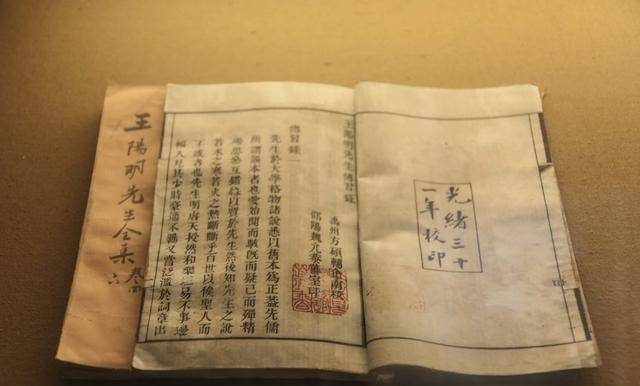 光緒三十
一年校印
王陽明先生傳習錄
傳習錄一
先生於大學格物諸說悉以舊本爲正蓋先儒
所謂誤本者也愛始聞而駭旣而疑已而殫精
竭思參互錯縱以質於先生然後知先生之說
若水之寒若火之熱斷斷乎百世以俟聖人而
不惑者也先生明睿天授然和樂坦易不事邊
幅人見其少時豪邁不羈又嘗泛濫於詞章出
王陽明先生全集